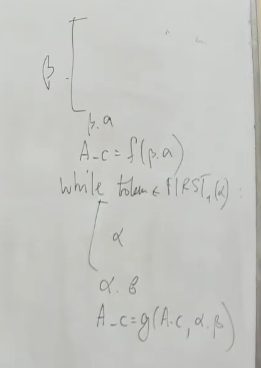 β.
β.a
A_c = f(β.a)
while token ∈ FIRST₁(α) :
α
α. β
A_c = g(A.c, α.β)